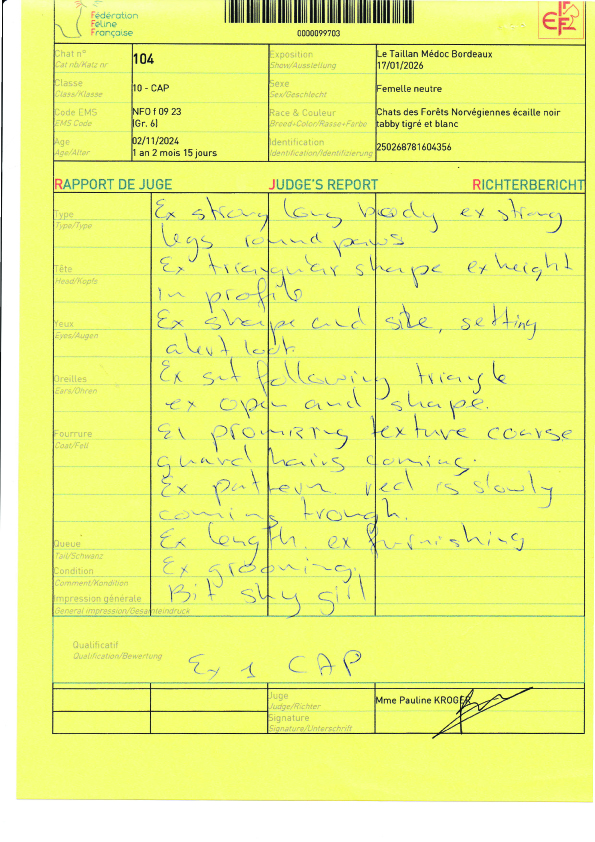 Fédération
Féline
Française
0000099703
FiFe
Chat n°
Cat nb/Katz nr
104
Exposition
Show/Ausstellung
Le Taillan Médoc Bordeaux
17/01/2026
Classe
Class/Klasse
10 - CAP
Sexe
Sex/Geschlecht
Femelle neutre
Code EMS
EMS Code
NFO f 09 23
(Gr. 6)
Race & Couleur
Breed+Color/Rasse+Farbe
Chats des Forêts Norvégiennes écaille noir
tabby tigré et blanc
Age
Age/Alter
02/11/2024
1 an 2 mois 15 jours
Identification
Identification/Identifizierung
250268781604356
RAPPORT DE JUGE JUDGE'S REPORT RICHTERBERICHT
Type
Type/Type
Ex strong long body ex strong
legs round paws
Tête
Head/Kopfe
Ex triangular shape ex height
in profile
Yeux
Eyes/Augen
Ex shape and site, setting
alert look
Oreilles
Ears/Ohren
Ex set following triangle
ex open and shape.
Fourrure
Coat/Fell
Ex promizing texture coarse
guard hairs coming.
Ex pattern. red is slowly
coming trough.
Queue
Tail/Schwanz
Ex length. ex furnishing
Condition
Comment/Kondition
Ex grooming.
Impression générale
General impression/Gesamteindruck
Bit shy girl
Qualificatif
Qualification/Bewertung
Ex 1 CAP
Juge
Judge/Richter
Mme Pauline KROGER
Signature
Signature/Unterschrift